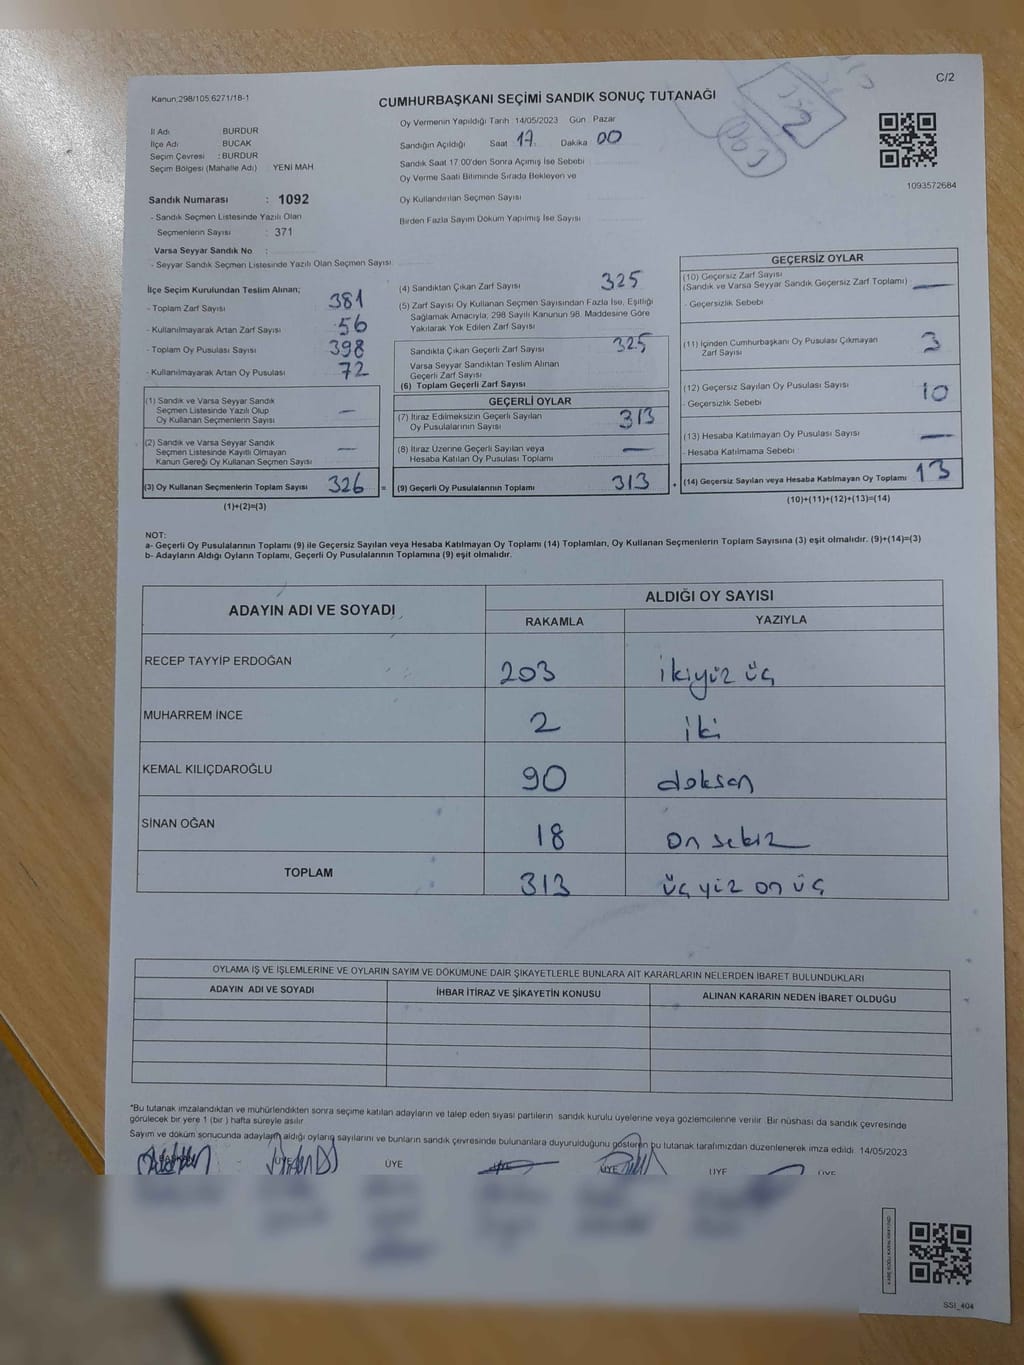 C/2
Kanun:298/105.6271/18-1
CUMHURBAŞKANI SEÇİMİ SANDIK SONUÇ TUTANAĞI
1093572684
İl Adı BURDUR
İlçe Adı BUCAK
Seçim Çevresi : BURDUR
Seçim Bölgesi (Mahalle Adı) YENİ MAH
Sandık Numarası : 1092
- Sandık Seçmen Listesinde Yazılı Olan
Seçmenlerin Sayısı : 371
Varsa Seyyar Sandık No :
- Seyyar Sandık Seçmen Listesinde Yazılı Olan Seçmen Sayısı
Oy Vermenin Yapıldığı Tarih 14/05/2023 Gün Pazar
Sandığın Açıldığı Saat 17 Dakika 00
Sandık Saat 17.00'den Sonra Açımış İse Sebebi
Oy Verme Saati Bitiminde Sırada Bekleyen ve
Oy Kullandırılan Seçmen Sayısı
Birden Fazla Sayım Döküm Yapılmış İse Sayısı
İlçe Seçim Kurulundan Teslim Alınan;
- Toplam Zarf Sayısı 381
- Kullanılmayarak Artan Zarf Sayısı 56
- Toplam Oy Pusulası Sayısı 398
- Kullanılmayarak Artan Oy Pusulası 72
(1) Sandık ve Varsa Seyyar Sandık
Seçmen Listesinde Yazılı Olup
Oy Kullanan Seçmenlerin Sayısı —
(2) Sandık ve Varsa Seyyar Sandık
Seçmen Listesinde Kayıtlı Olmayan
Kanun Gereği Oy Kullanan Seçmen Sayısı —
(3) Oy Kullanan Seçmenlerin Toplam Sayısı 326 =
(1)+(2)=(3)
(4) Sandıktan Çıkan Zarf Sayısı 325
(5) Zarf Sayısı Oy Kullanan Seçmen Sayısından Fazla İse, Eşitliği
Sağlamak Amacıyla, 298 Sayılı Kanunun 98. Maddesine Göre
Yakılarak Yok Edilen Zarf Sayısı
Sandıkta Çıkan Geçerli Zarf Sayısı 325
Varsa Seyyar Sandıktan Teslim Alınan
Geçerli Zarf Sayısı
(6) Toplam Geçerli Zarf Sayısı
GEÇERLİ OYLAR
(7) İtiraz Edilmeksizin Geçerli Sayılan
Oy Pusulalarının Sayısı 313
(8) İtiraz Üzerine Geçerli Sayılan veya
Hesaba Katılan Oy Pusulası Toplamı —
(9) Geçerli Oy Pusulalarının Toplamı 313 +
GEÇERSİZ OYLAR
(10) Geçersiz Zarf Sayısı
(Sandık ve Varsa Seyyar Sandık Geçersiz Zarf Toplamı) —
- Geçersizlik Sebebi
(11) İçinden Cumhurbaşkanı Oy Pusulası Çıkmayan
Zarf Sayısı 3
(12) Geçersiz Sayılan Oy Pusulası Sayısı 10
- Geçersizlik Sebebi
(13) Hesaba Katılmayan Oy Pusulası Sayısı —
- Hesaba Katılmama Sebebi
(14) Geçersiz Sayılan veya Hesaba Katılmayan Oy Toplamı 13
(10)+(11)+(12)+(13)=(14)
NOT:
a- Geçerli Oy Pusulalarının Toplamı (9) ile Geçersiz Sayılan veya Hesaba Katılmayan Oy Toplamı (14) Toplamları, Oy Kullanan Seçmenlerin Toplam Sayısına (3) eşit olmalıdır. (9)+(14)=(3)
b- Adayların Aldığı Oyların Toplamı, Geçerli Oy Pusulalarının Toplamına (9) eşit olmalıdır.
ADAYIN ADI VE SOYADI ALDIĞI OY SAYISI
RAKAMLA YAZIYLA
RECEP TAYYİP ERDOĞAN 203 ikiyüz üç
MUHARREM İNCE 2 iki
KEMAL KILIÇDAROĞLU 90 doksan
SİNAN OĞAN 18 on sekiz
TOPLAM 313 üç yüz on üç
OYLAMA İŞ VE İŞLEMLERİNE VE OYLARIN SAYIM VE DÖKÜMÜNE DAİR ŞİKAYETLERLE BUNLARA AİT KARARLARIN NELERDEN İBARET BULUNDUKLARI
ADAYIN ADI VE SOYADI İHBAR İTİRAZ VE ŞİKAYETİN KONUSU ALINAN KARARIN NEDEN İBARET OLDUĞU
*Bu tutanak imzalandıktan ve mühürlendikten sonra seçime katılan adayların ve talep eden siyasi partilerin sandık kurulu üyelerine veya gözlemcilerine verilir. Bir nüshası da sandık çevresinde
görülecek bir yere 1 (bir ) hafta süreyle asılır
Sayım ve döküm sonucunda adayların aldığı oyların sayılarını ve bunların sandık çevresinde bulunanlara duyurulduğunu gösteren bu tutanak tarafımızdan düzenlenerek imza edildi. 14/05/2023
BAŞKAN ÜYE ÜYE ÜYE ÜYE ÜYE ÜYE
SSI_404